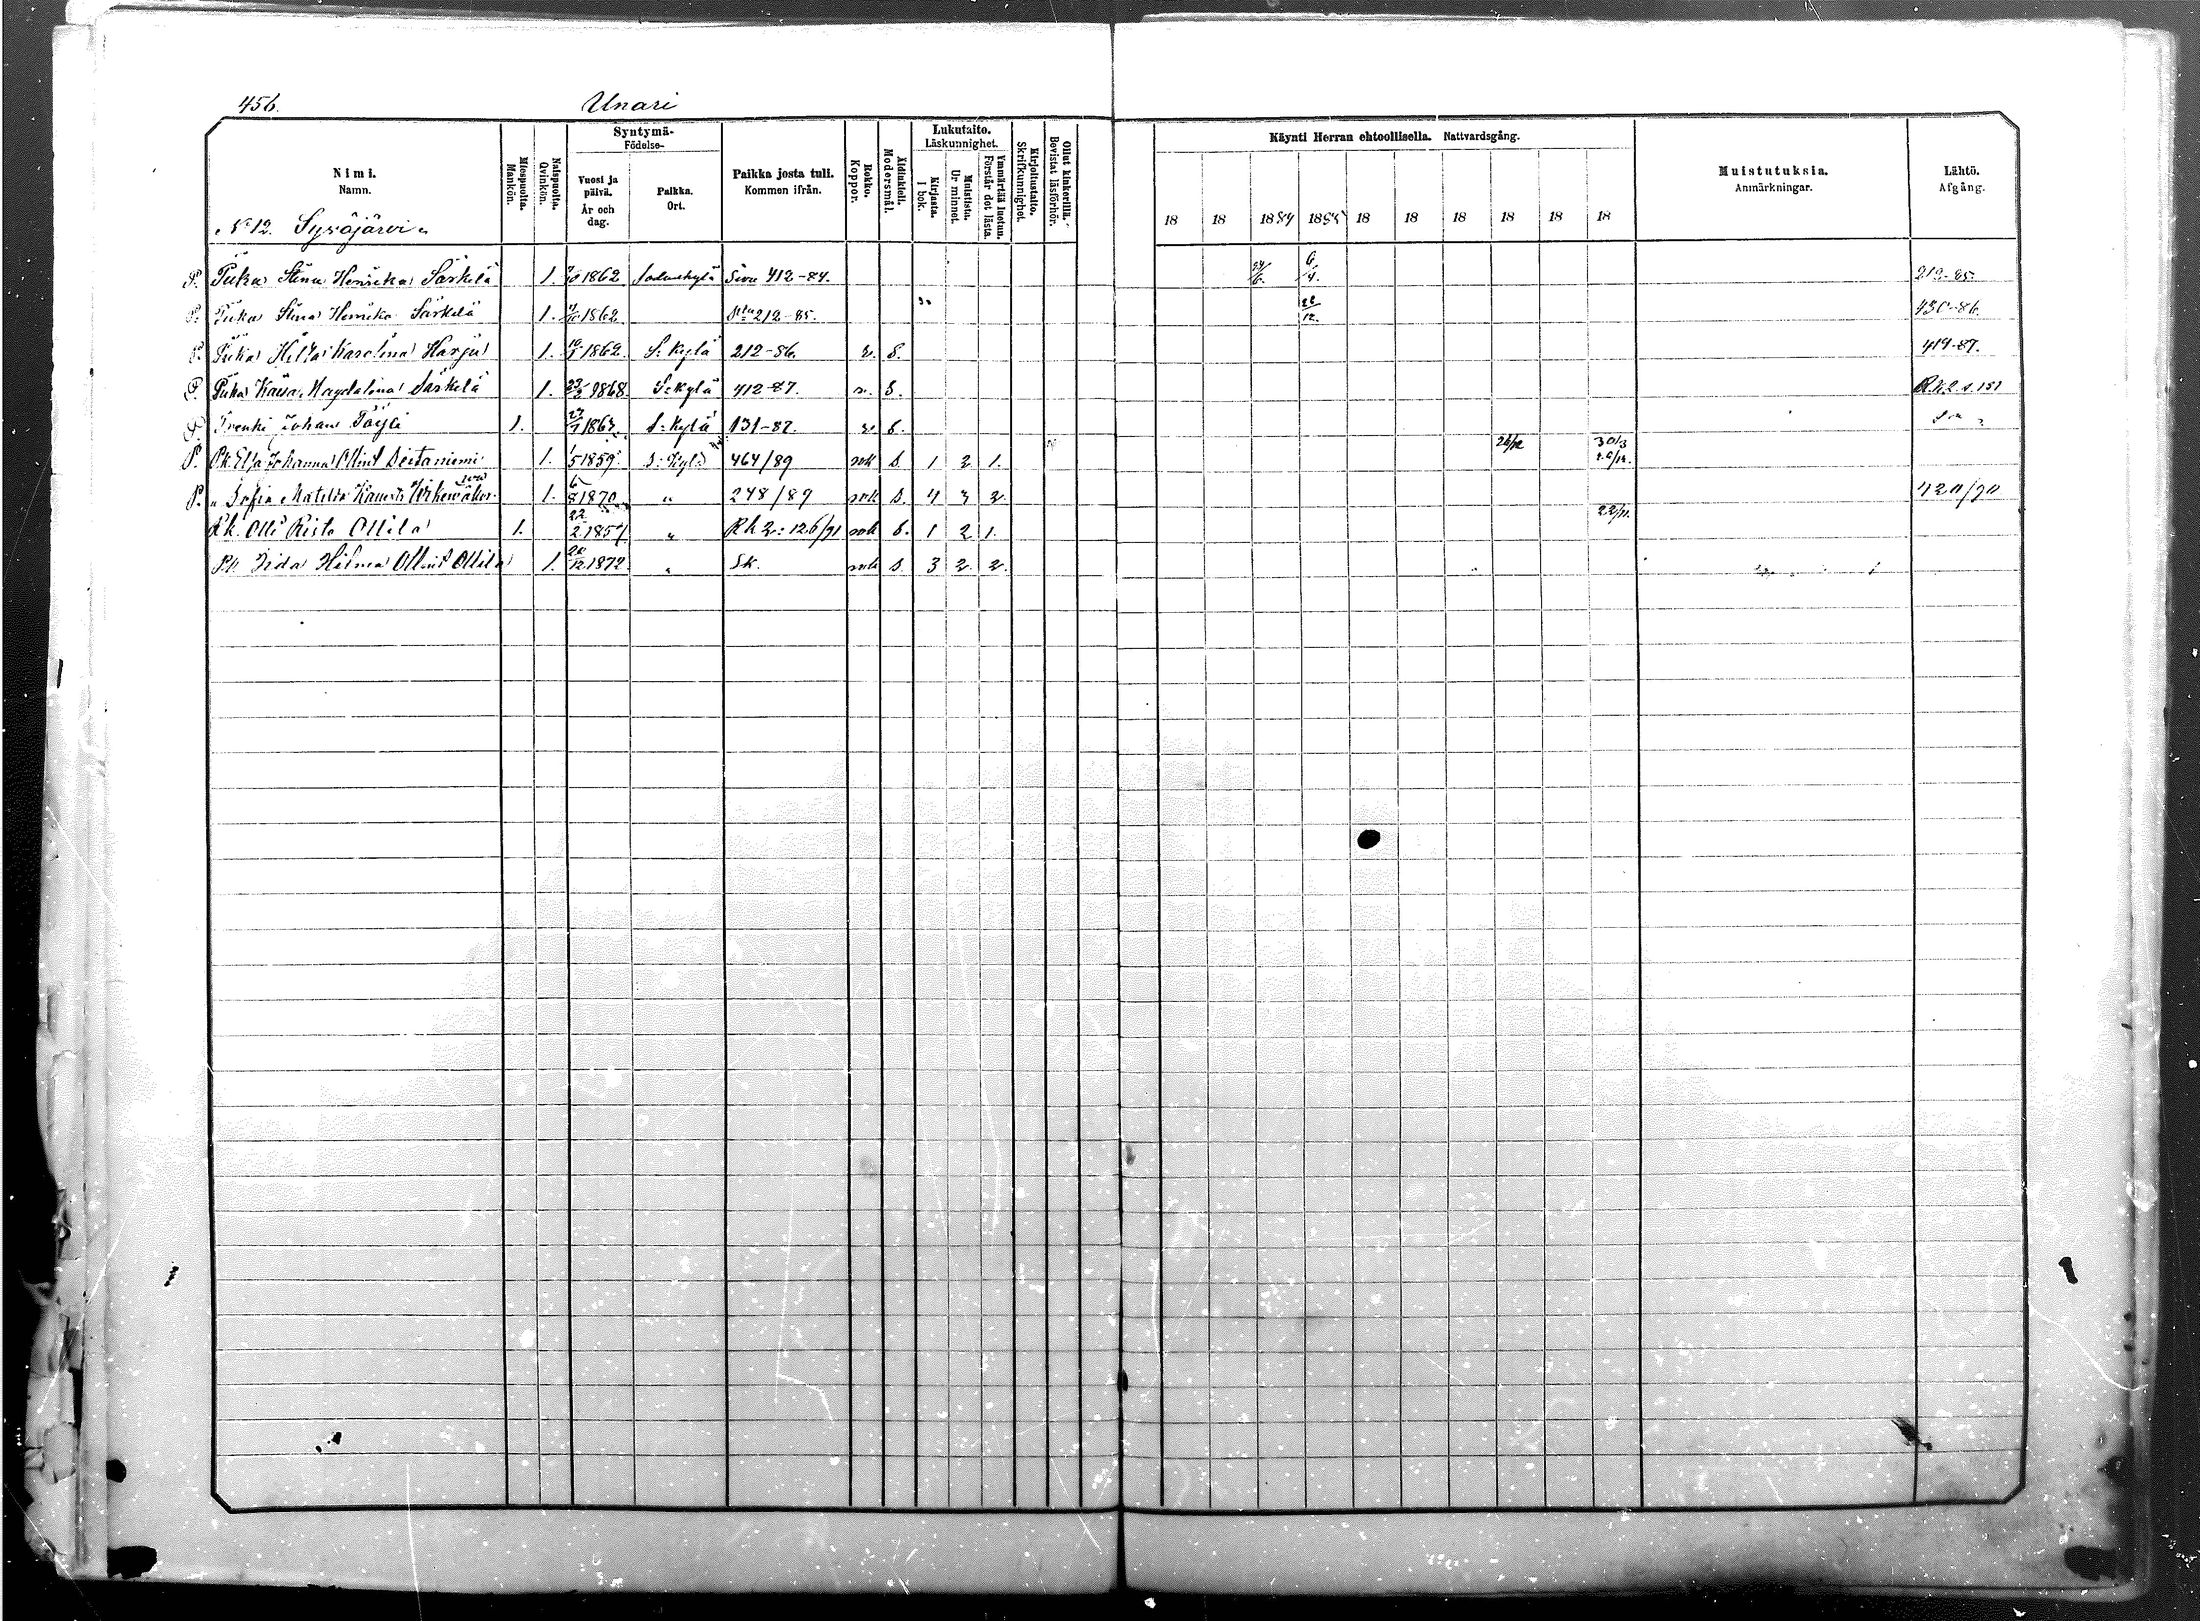 456. Unari
Nimi. Namn. Miespuolta. Mankön. Naispuolta. Qvinkön. Syntymä- Födelse- Vuosi ja päivä. År och dag. Paikka. Ort. Paikka josta tuli. Kommen ifrån. Rokko. Koppor. Äidinkieli. Modersmål. Lukutaito. Läskunnighet. Kirjasta. I bok. Muistista. Ur minnet. Ymmärtää luetun. Förstår det lästa. Kirjoitustaito. Skrifkunnighet. Ollut kinkerillä. Bevistat läsförhör. Käynti Herran ehtoollisella. Nattvardsgång. Muistutuksia. Anmärkningar. Lähtö. Afgång.
18 18 1884 1885 18 18 18 18 18 18
No 12. Syväjärvi
P. Piika Stina Henrika Särkelä 1. 1862 Sodankylä Sivu 412-84. 6/4. 212-85.
P. Piika Stina Henrika Särkelä 1. 1862 212-85. 26/12. 430-86.
P. Piika Hilta Karolina Harju 1. 1862 S:kylä 212-86. r. S. 419-87.
P. Piika Kaisa Magdalena Särkelä 1. 1868 S:kylä 412-87. r. S. Rk 2. s. 151
P. Trenki Johan Pöyli 1. 1863 S:kylä 131-87. r. S.
P. Pk. Elsa Johanna Ollint 1. 1859 S:kylä 464/89 rok S. 1 2 1. 26/12 30/3
P. " Sofia Matilda 1. 6/8 1870 " 248/89 rok S. 4 3 2. 420/90
Rk. Olli Risto Ollila 1. 22/2 1857 " Rk 2: 126/91 rok S. 1 2 1. 22/11.
Pk. Iida Hilma Ollint Ollila 1. 1872 " Sk. rok S. 3 2 2.